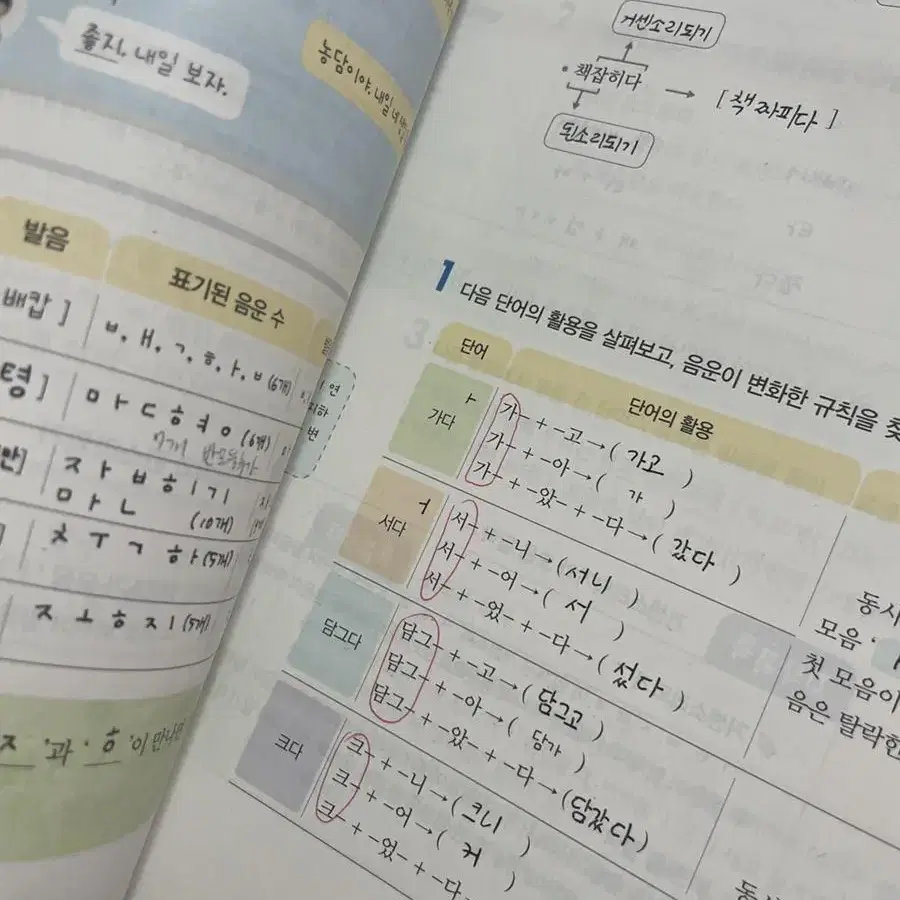 좋지. 내일 보자.
농담이야. 내일 네
발음
표기된 음운 수
배캅 ]
ㅂ, ㅐ, ㄱ, ㅎ, ㅏ, ㅂ (6개)
령 ]
ㅁ ㅏ ㄷ ㅎ ㅕ ㅇ (6개)
7개
ㅈ ㅏ ㅂ ㅎ ㅣ ㄱ ㅣ
ㅁ ㅏ ㄴ (10개)
ㅊ ㅜ ㄱ ㅎ ㅏ (5개)
ㅈ ㅗ ㅎ ㅈ ㅣ (5개)
ㅈ '과 ' ㅎ '이 만나면
거센소리되기
• 책잡히다 → [ 책짜피다 ]
된소리되기
1 다음 단어의 활용을 살펴보고, 음운이 변화한 규칙을 찾
단어
단어의 활용
ㅏ
가다
가- + -고 → ( 가고 )
가- + -아 → ( 가 )
가- + -았- + -다 → ( 갔다 )
ㅓ
서다
서- + -니 → ( 서니 )
서- + -어 → ( 서 )
서- + -었- + -다 → ( 섰다 )
담그다
담그- + -고 → ( 담그고 )
담그- + -아 → ( 담가 )
담그- + -았- + -다 → ( 담갔다 )
크다
크- + -니 → ( 크니 )
크- + -어 → ( 커 )
크- + -었- + -다
동사
모음 '
첫 모음이
음은 탈락한